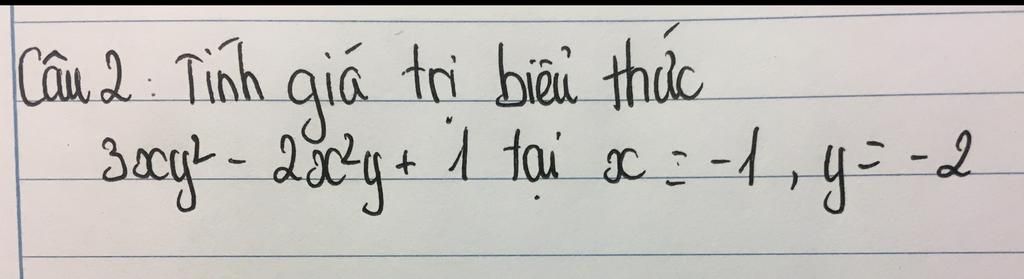 Câu 2: Tính giá trị biểu thức
3xy² - 2x²y + 1 tại x = -1, y = -2